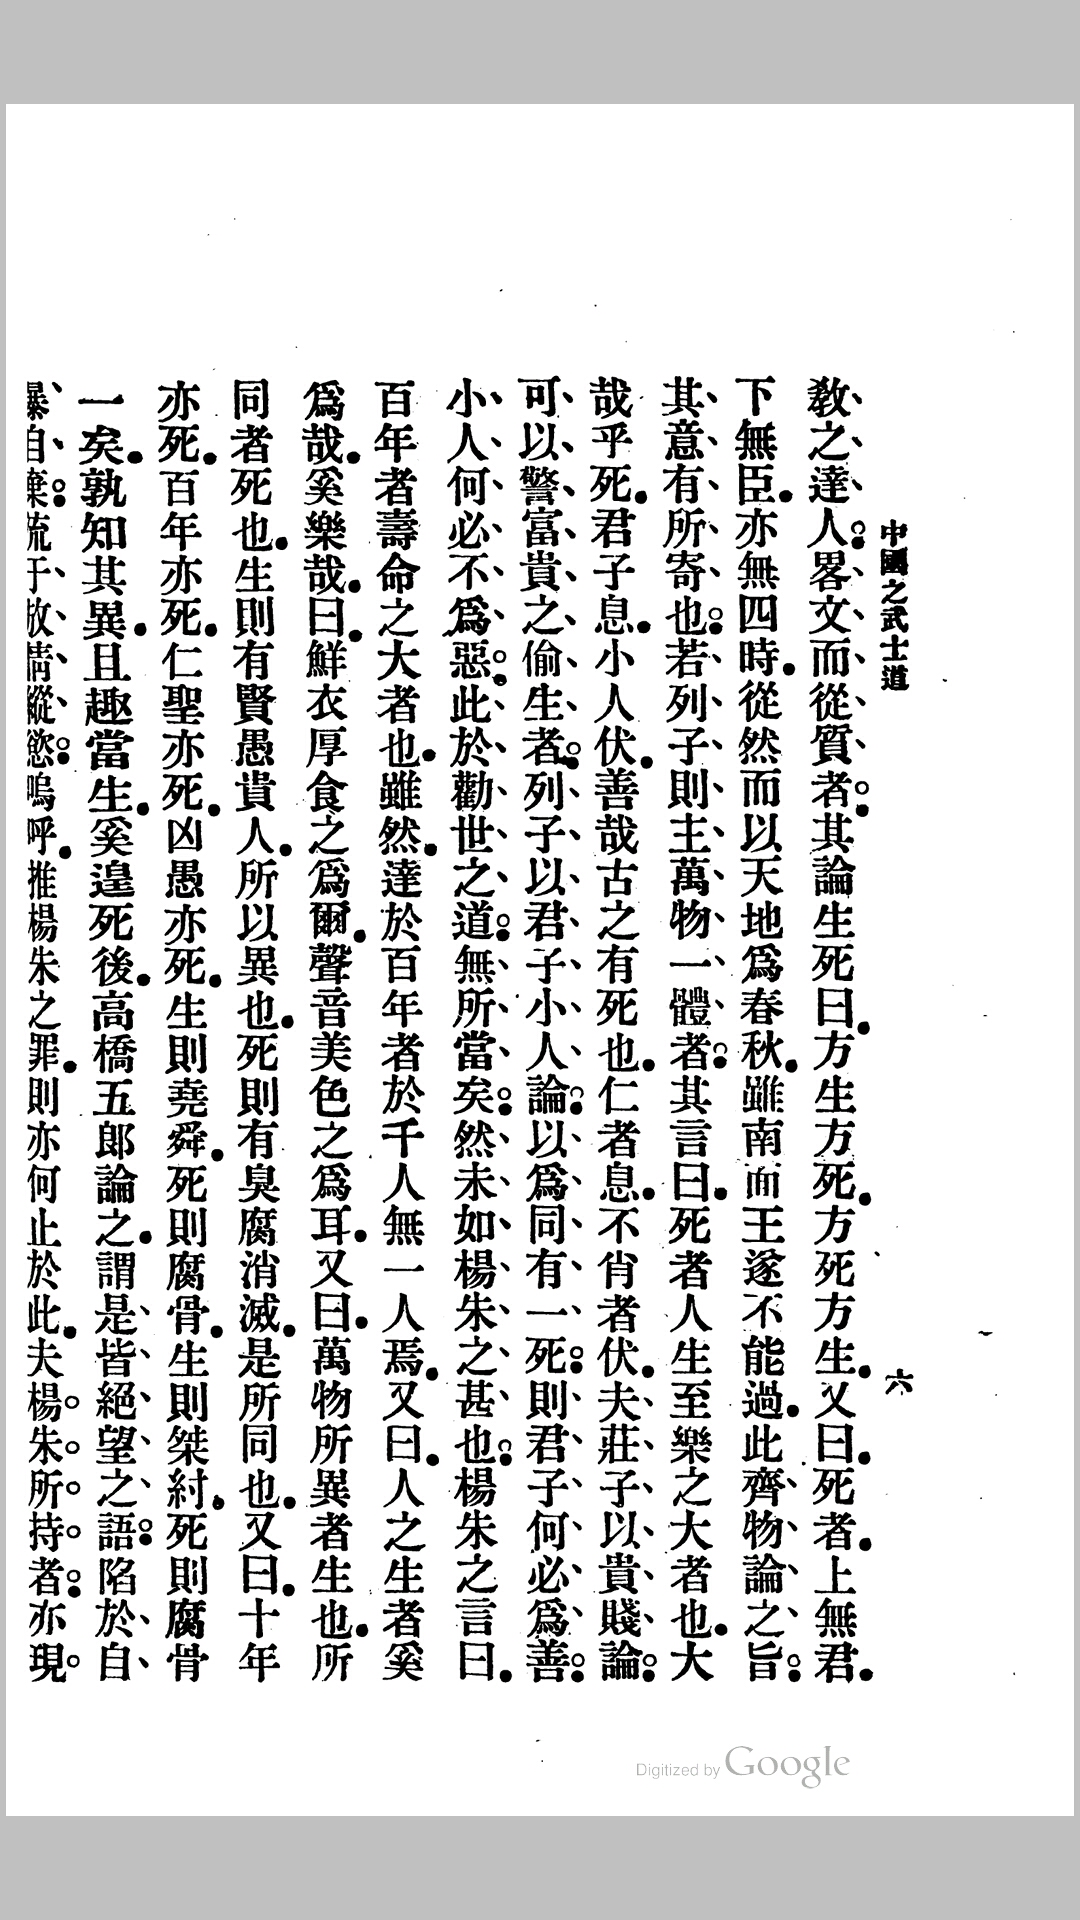 中國之武士道
六
教之達人。畧文而從質者。其論生死曰。方生方死。方死方生。又曰。死者。上無君。
下無臣。亦無四時。從然而以天地爲春秋。雖南面王遂不能過。此齊物論之旨。
其意有所寄也。若列子則主萬物一體者。其言曰。死者人生至樂之大者也。大
哉乎死。君子息。小人伏。善哉古之有死也。仁者息。不肖者伏。夫莊子以貴賤論。
可以警富貴之偷生者。列子以君子小人論。以爲同有一死。則君子何必爲善。
小人何必不爲惡。此於勸世之道。無所當矣。然未如楊朱之甚也。楊朱之言曰。
百年者壽命之大者也。雖然。達於百年者於千人無一人焉。又曰。人之生者奚
爲哉。奚樂哉。曰。鮮衣厚食之爲爾。聲音美色之爲耳。又曰。萬物所異者生也。所
同者死也。生則有賢愚貴人。所以異也。死則有臭腐消滅。是所同也。又曰。十年
亦死。百年亦死。仁聖亦死。凶愚亦死。生則堯舜。死則腐骨。生則桀紂。死則腐骨
一矣。孰知其異。且趣當生。奚遑死後。高橋五郎論之。謂是皆絕望之語。陷於自
暴自棄。流于放情縱慾。嗚呼。推楊朱之罪。則亦何止於此。夫楊朱所持者。亦現
Digitized by Google